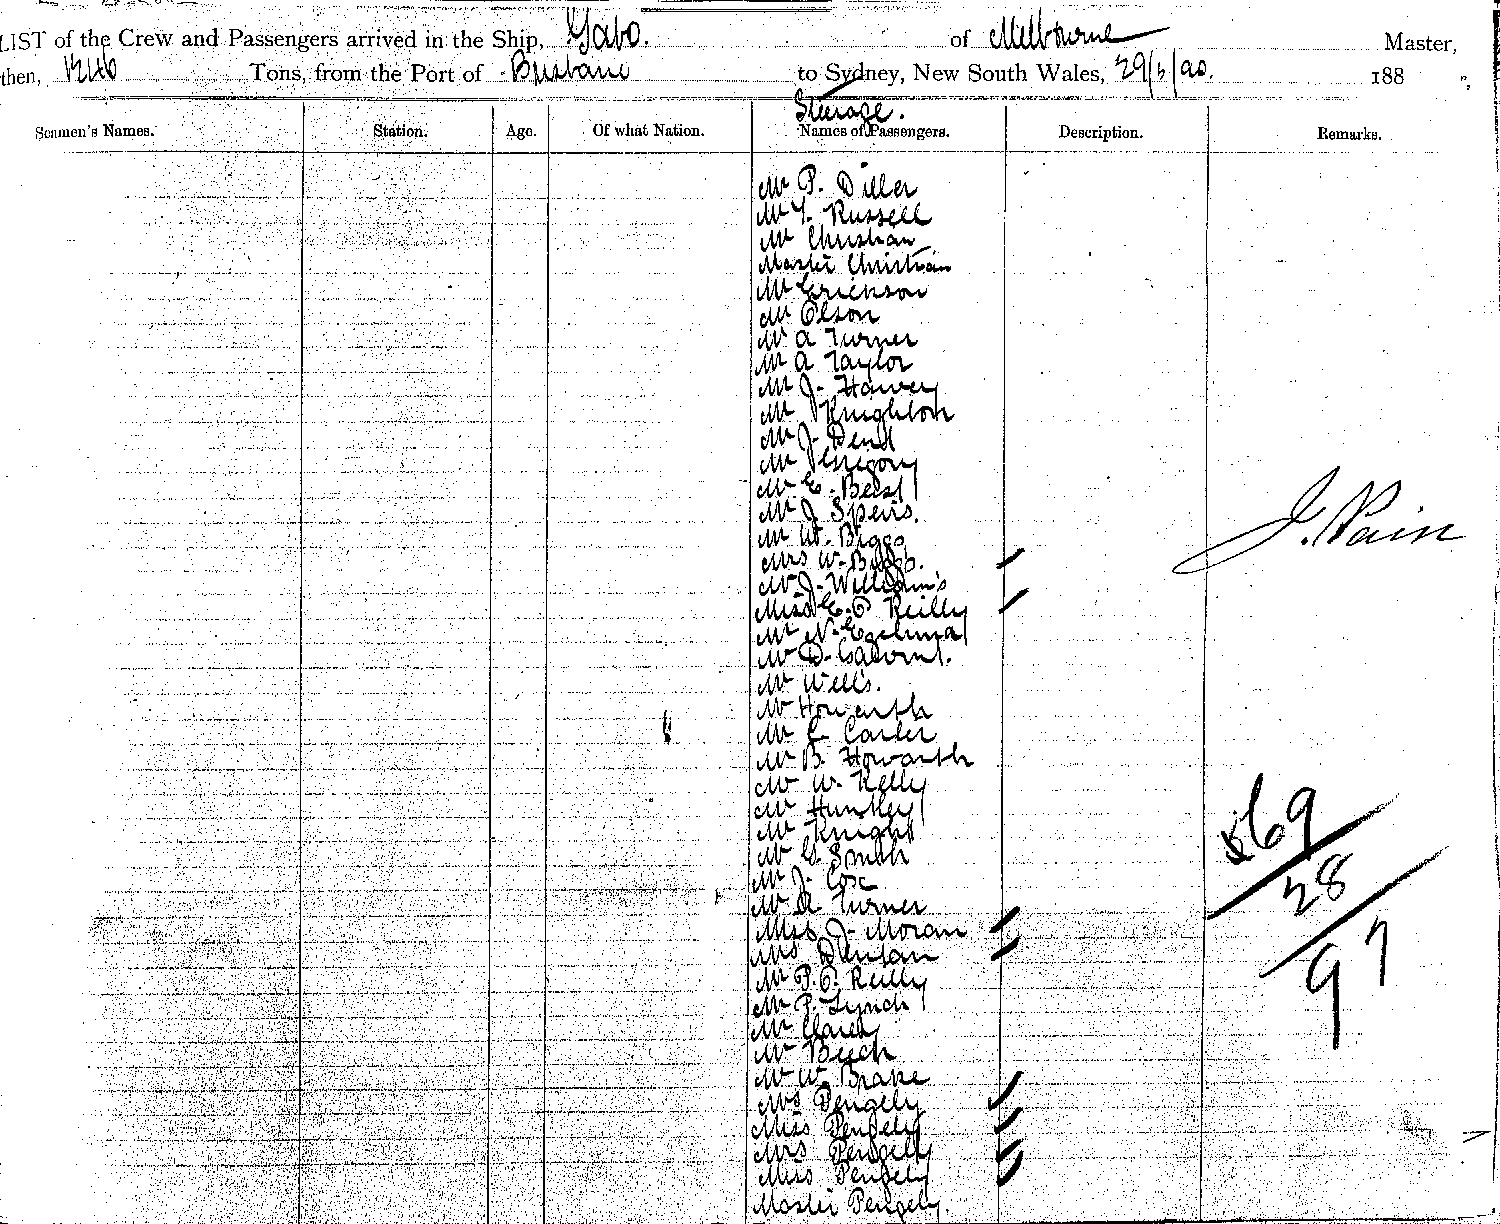 LIST of the Crew and Passengers arrived in the Ship, Gabo. of Melbourne Master,
then, 1246 Tons, from the Port of Brisbane to Sydney, New South Wales, 29/5/90. 188
Steerage.
Seamen's Names. Station. Age. Of what Nation. Names of Passengers. Description. Remarks.
Mr P. Diller
Mr Russell
Mr Christian
Master Christian
Mr Erickson
Mr Olson
Mr A Turner
Mr A Taylor
Mr J. Harvey
Mr Knighton
Mr J. Dend
Mr Gregory
Mr E. Best
Mr J Speirs.
Mr W. Biggs
J. Pain
Mrs W. Biggs.
Mr J. Williams
Miss E. O Reilly
Mr N.
Mr D.
Mr Wells.
Mr Howarth
Mr C. Carter
Mr B. Howarth
Mr W. Kelly
Mr Huntley
69
Mr Knight
Mr G. Smith
Mr J. Cox
28
Mr A. Turner
Miss J. Moran
97
Mrs Duncan
Mr P. O. Reilly
Mr P. Lynch
Mr
Mr Beech
Mr W. Brake
Mrs Pengelly
Miss Pengelly
Mrs Pengelly
Miss Pengelly
Master Pengelly